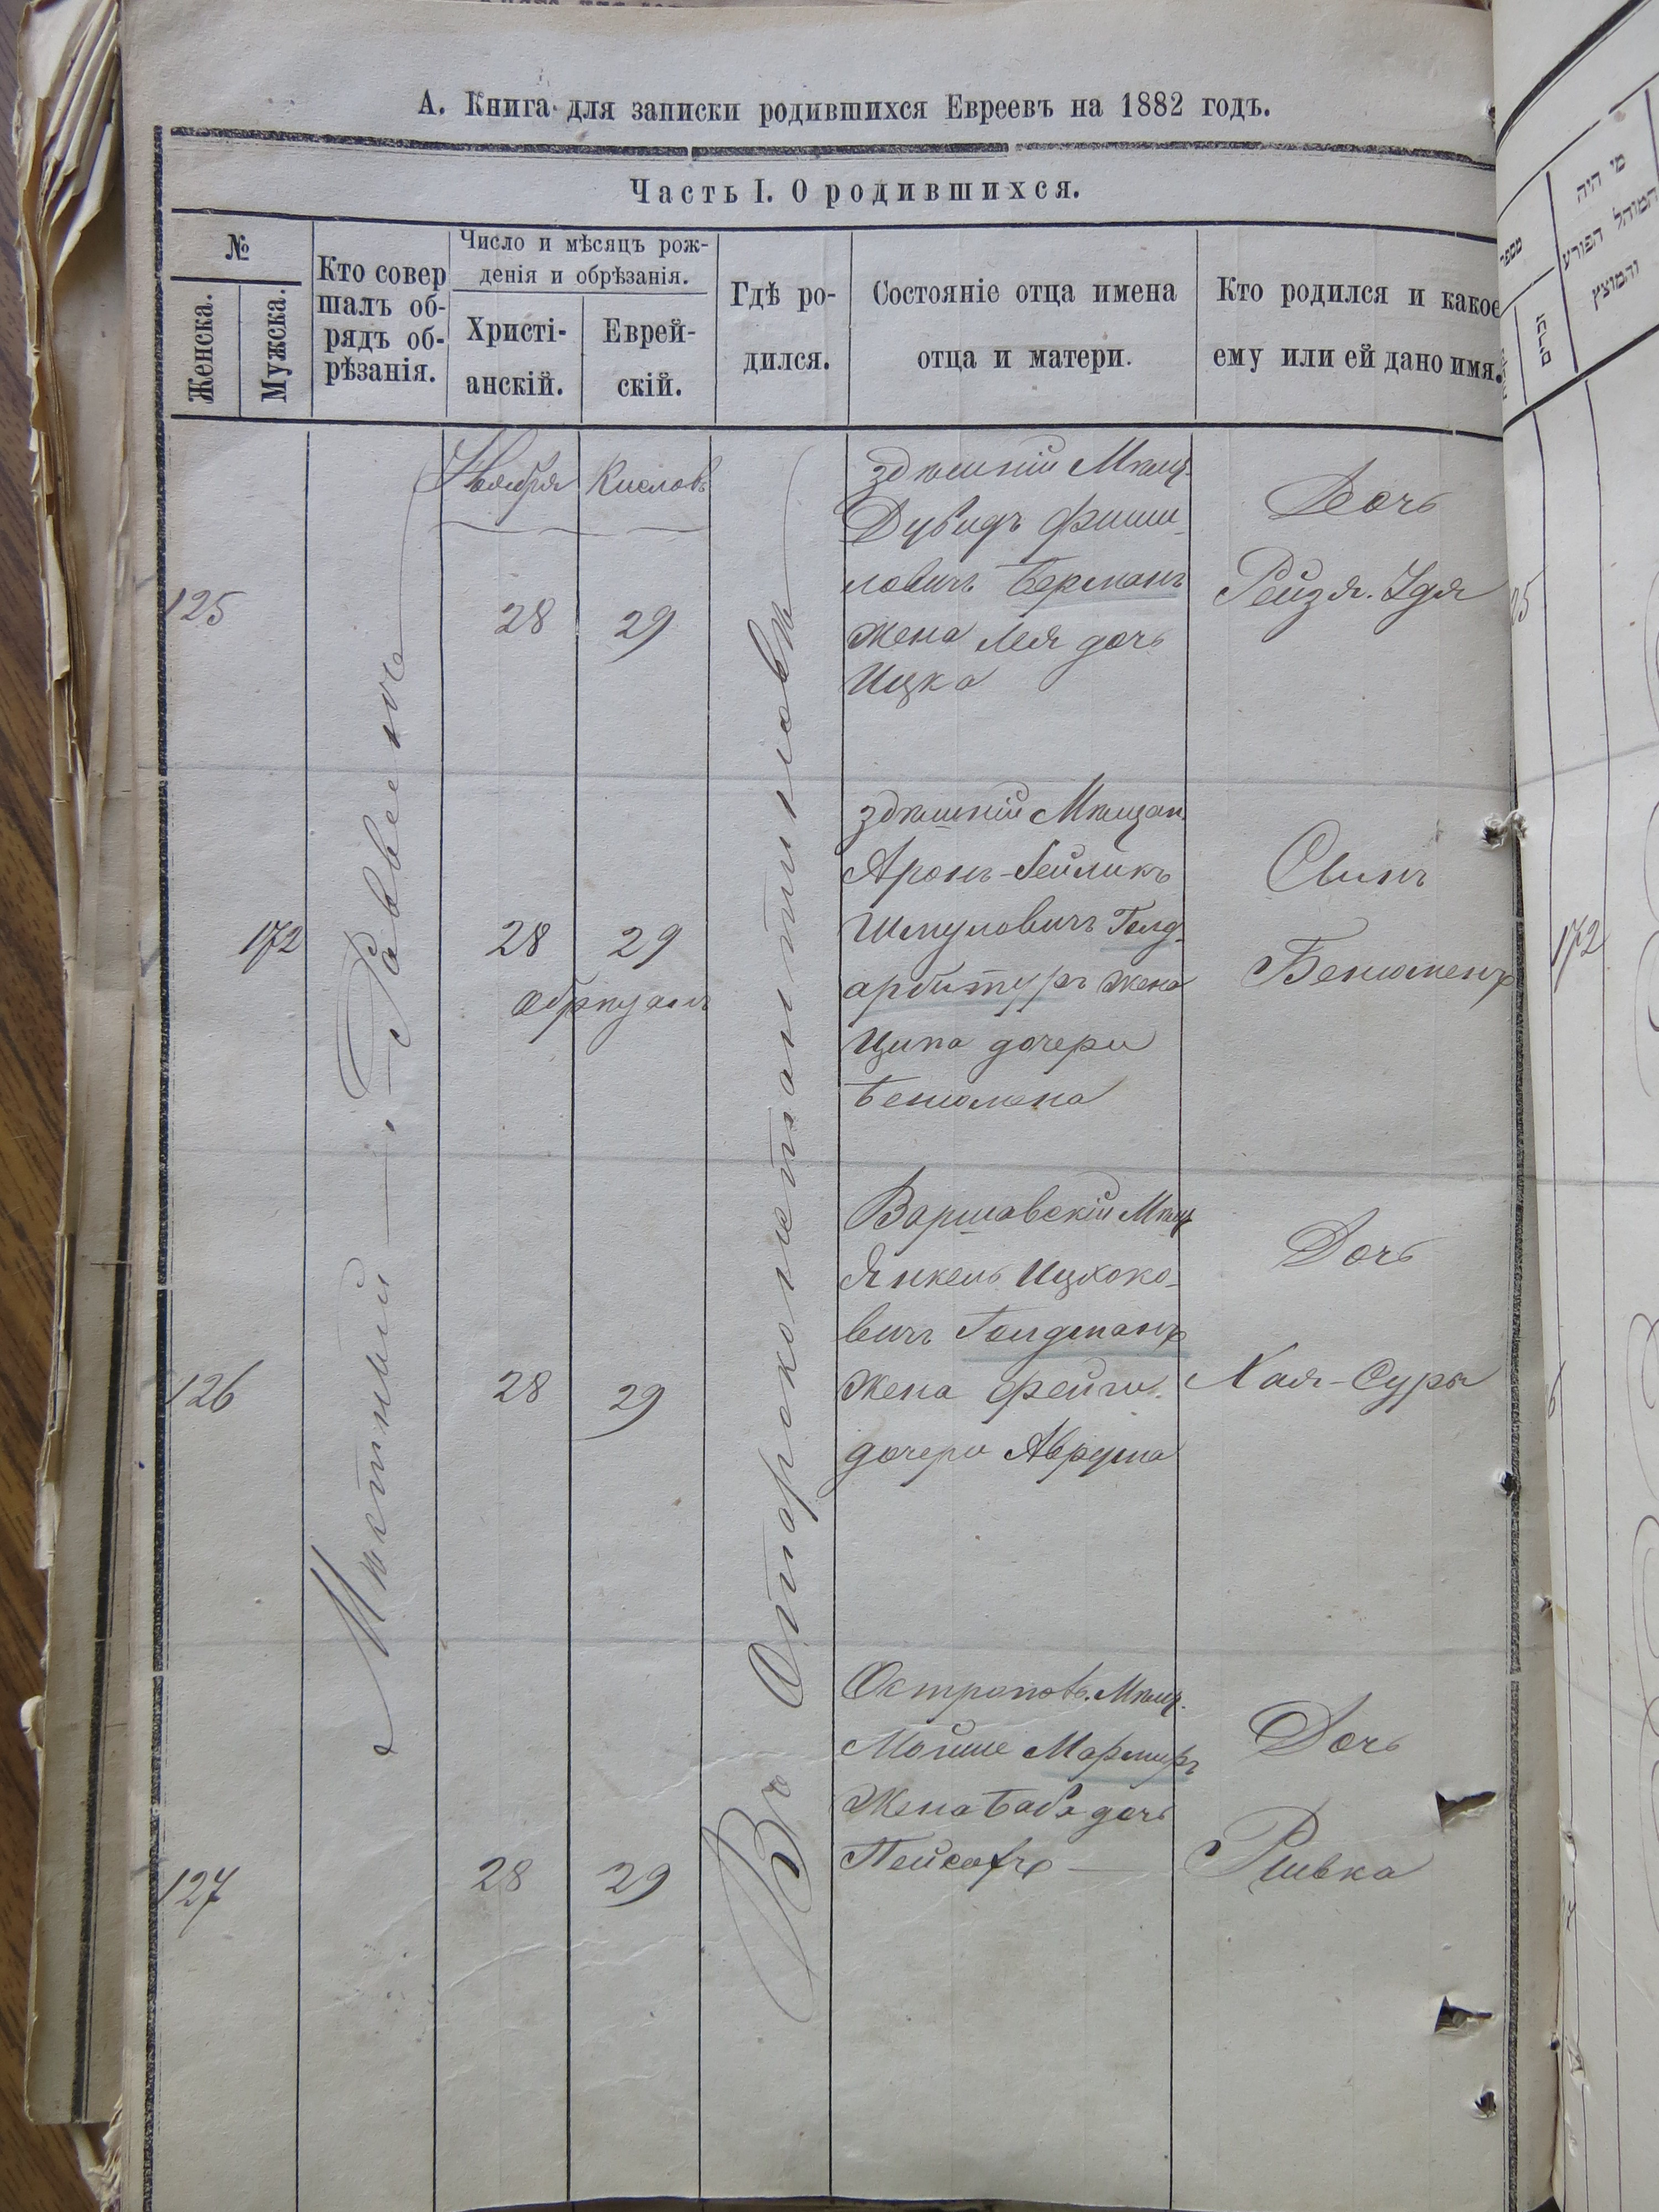 А. Книга для записки родившихся Евреевъ на 1882 годъ.
Часть I. О родившихся.
№
Женска.
Мужска.
Кто совер
шалъ об-
рядъ об-
рѣзанія.
Число и мѣсяцъ рож-
денія и обрѣзанія.
Христі-
анскій.
Еврей-
скій.
Гдѣ ро-
дился.
Состояніе отца имена
отца и матери.
Кто родился и какое
ему или ей дано имя.
Мѣстный Раввинъ
Въ Староконстантиновѣ
Ноября
Кислов
125
28
29
здѣшній Мѣщ.
Дувидъ Фиши-
ловичъ Берманъ
жена Лея дочь
Ицка
Дочь
Рейзя-Удя
172
28
29
обрѣзанъ
здѣшній Мѣщан.
Аронъ-Зейликъ
Шмуловичъ Голд-
арбитуръ жена
Ципа дочери
Бенюмена
Сынъ
Бенюменъ
126
28
29
Варшавскій Мѣщ
Янкель Ицкоко-
вичъ Голдманъ
жена Фейги.
дочери Аврума
Дочь
Хая-Сура
127
28
29
Остропов. Мѣщ.
Мойше Мармуръ
Жена Баба дочь
Дочь
Ривка
מי היה
המוהל הפורע
והמוצץ
מספר
זכרים
172